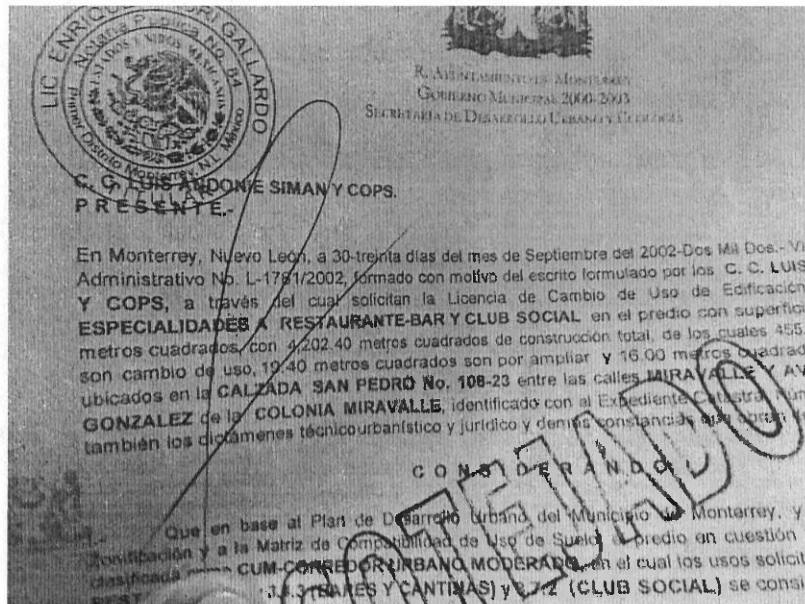 LIC. ENRIQUE GALLARDO
Notaría Pública No. 84
ESTADOS UNIDOS MEXICANOS
Primer Distrito Monterrey, N.L. México
TITULAR
R. AYUNTAMIENTO DE MONTERREY
GOBIERNO MUNICIPAL 2000-2003
SECRETARÍA DE DESARROLLO URBANO Y ECOLOGÍA
C. C. LUIS ANDONIE SIMAN Y COPS.
P R E S E N T E.-
En Monterrey, Nuevo León, a 30-treinta días del mes de Septiembre del 2002-Dos Mil Dos.-
Administrativo No. L-1781/2002, formado con motivo del escrito formulado por los C. C. LUIS
Y COPS, a través del cual solicitan la Licencia de Cambio de Uso de Edificación
ESPECIALIDADES A RESTAURANTE-BAR Y CLUB SOCIAL en el predio con
metros cuadrados, con 4,202.40 metros cuadrados de construcción total, de los cuales 455
son cambio de uso, 19.40 metros cuadrados son por ampliar y 16.00 metros
ubicados en la CALZADA SAN PEDRO No. 108-23 entre las calles MIRAVALLE Y AV
GONZALEZ de la COLONIA MIRAVALLE, identificado con el Expediente Catastral
también los dictámenes técnico urbanístico y jurídico y demás constancias que obran
C O N S I D E R A N D O
Que en base al Plan de Desarrollo Urbano del Municipio de Monterrey, y
Zonificación y a la Matriz de Compatibilidad de Uso de Suelo el predio en cuestión
clasificada CUM-CORREDOR URBANO MODERADO, en el cual los usos
(BARES Y CANTINAS) y 3.7.2 (CLUB SOCIAL) se
COTEJADO